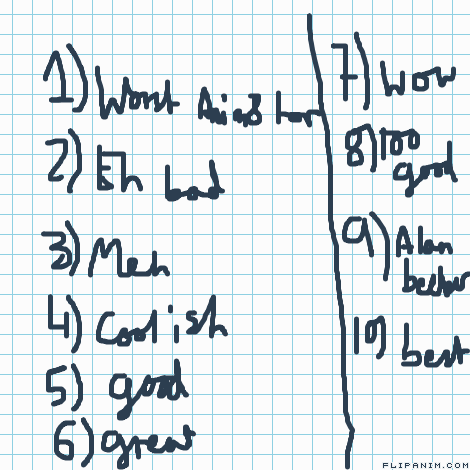 1) Worst
2) Eh bad
3) Meh
4) Coolish
5) good
6) great
7) Wow
8) Too
good
9) Alan
becker
10) best
FLIPANIM.COM